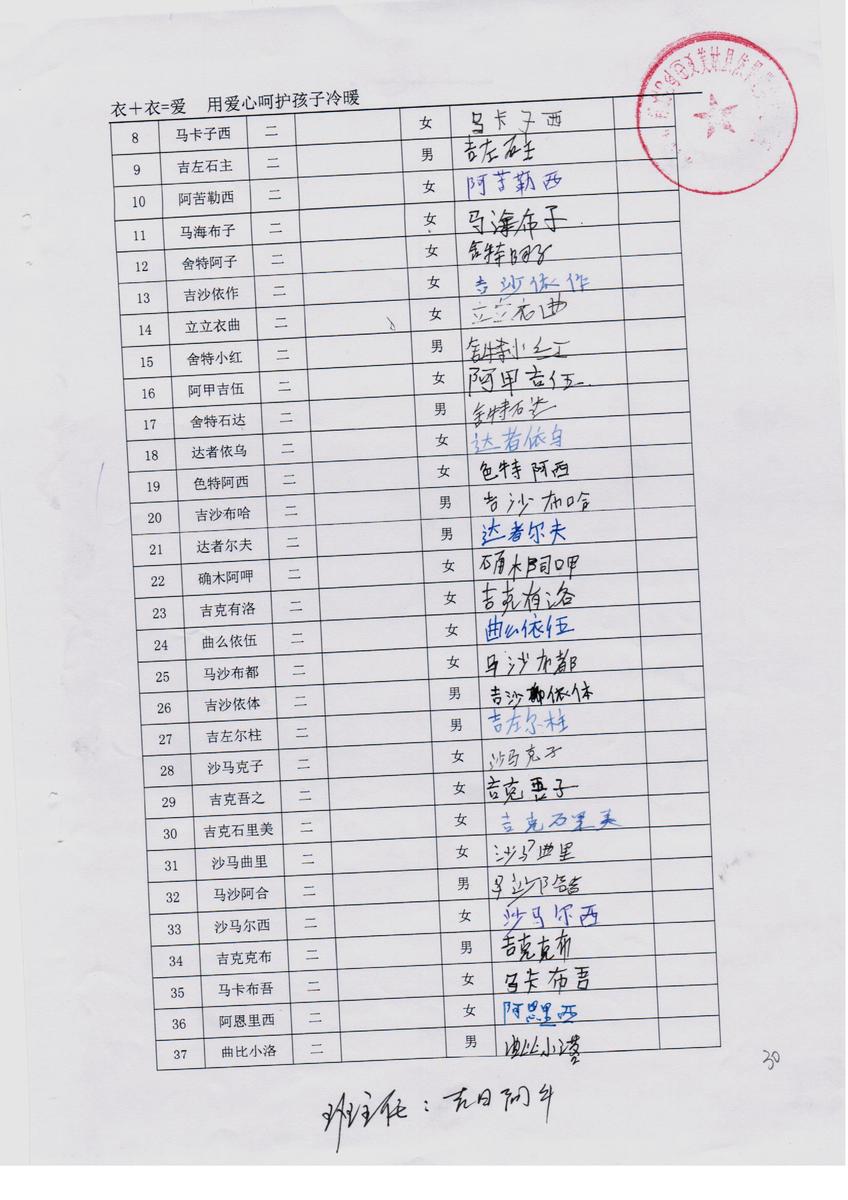 衣+衣=爱 用爱心呵护孩子冷暖
8 马卡子西 二 女 马卡子西
9 吉左石主 二 男 吉左石主
10 阿苦勒西 二 女 阿苦勒西
11 马海布子 二 女 马海布子
12 舍特阿子 二 女 舍特阿子
13 吉沙依作 二 女 吉沙依作
14 立立衣曲 二 女 立立衣曲
15 舍特小红 二 男 舍特小红
16 阿甲吉伍 二 女 阿甲吉伍
17 舍特石达 二 男 舍特石达
18 达者依乌 二 女 达者依乌
19 色特阿西 二 女 色特阿西
20 吉沙布哈 二 男 吉沙布哈
21 达者尔夫 二 男 达者尔夫
22 确木阿呷 二 女 确木阿呷
23 吉克有洛 二 女 吉克有洛
24 曲么依伍 二 女 曲么依伍
25 马沙布都 二 女 马沙布都
26 吉沙依体 二 男 吉沙依体
27 吉左尔柱 二 男 吉左尔柱
28 沙马克子 二 女 沙马克子
29 吉克吾之 二 女 吉克吾子
30 吉克石里美 二 女 吉克石里美
31 沙马曲里 二 女 沙马曲里
32 马沙阿合 二 男
33 沙马尔西 二 女 沙马尔西
34 吉克克布 二 男 吉克克布
35 马卡布吾 二 女 马卡布吾
36 阿恩里西 二 女 阿恩里西
37 曲比小洛 二 男 曲比小洛
班主任：吉日阿牛
30